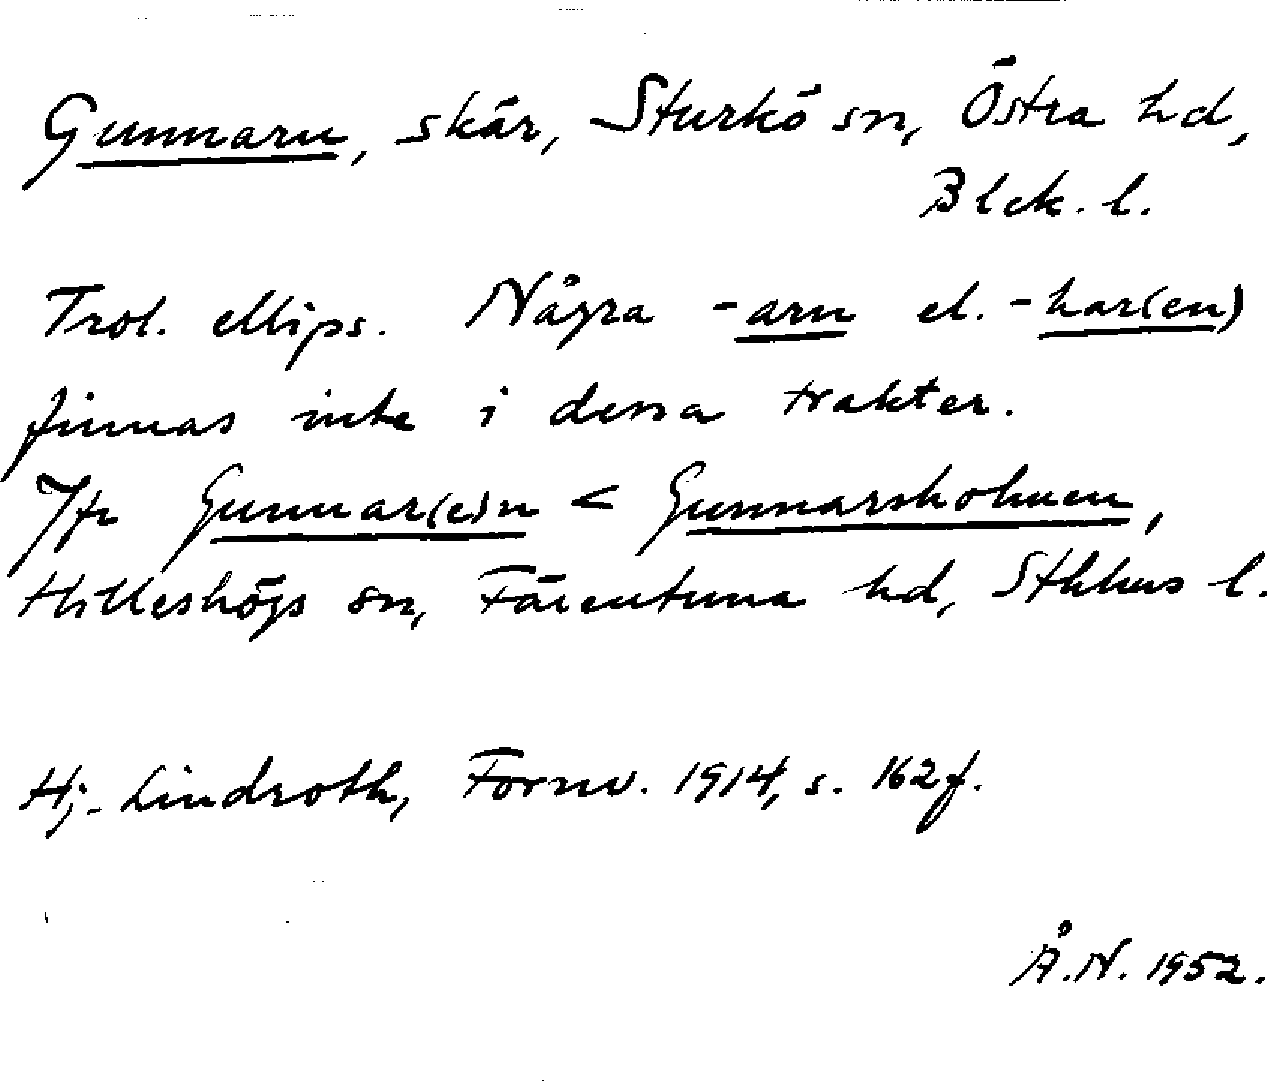 Gunnarn, skär, Sturkö sn, Östra hd,
Blek. l.
Trol. ellips. Några -arn el. -har(en)
finnas inte i dessa trakter.
Jfr Gunnar(e)n < Gunnarsholmen,
Hilleshögs sn, Färentuna hd, Sthlms l.
Hj. Lindroth, Fornv. 1914, s. 162 f.
Å.N. 1952.